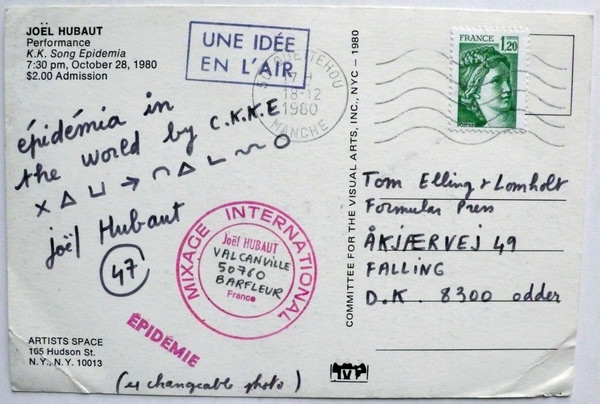 JOËL HUBAUT
Performance
K.K. Song Epidemia
7:30 pm, October 28, 1980
$2.00 Admission
UNE IDÉE
EN L'AIR
17 H
18-12
1980
MANCHE
FRANCE 1,20
épidémia in
the world by C.K.K.E
joël Hubaut
47
MIXAGE INTERNATIONAL
Joël HUBAUT
VALCANVILLE
50760
BARFLEUR
France
ÉPIDÉMIE
ARTISTS SPACE
105 Hudson St.
N.Y., N.Y. 10013
(exchangeable photo)
COMMITTEE FOR THE VISUAL ARTS, INC., NYC – 1980
Tom Elling & Lomholt
Formular Press
ÅKJÆRVEJ 49
FALLING
D.K. 8300 odder